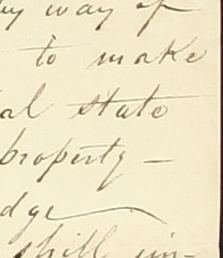 by way of
to make
al state
property —
dge
still un-